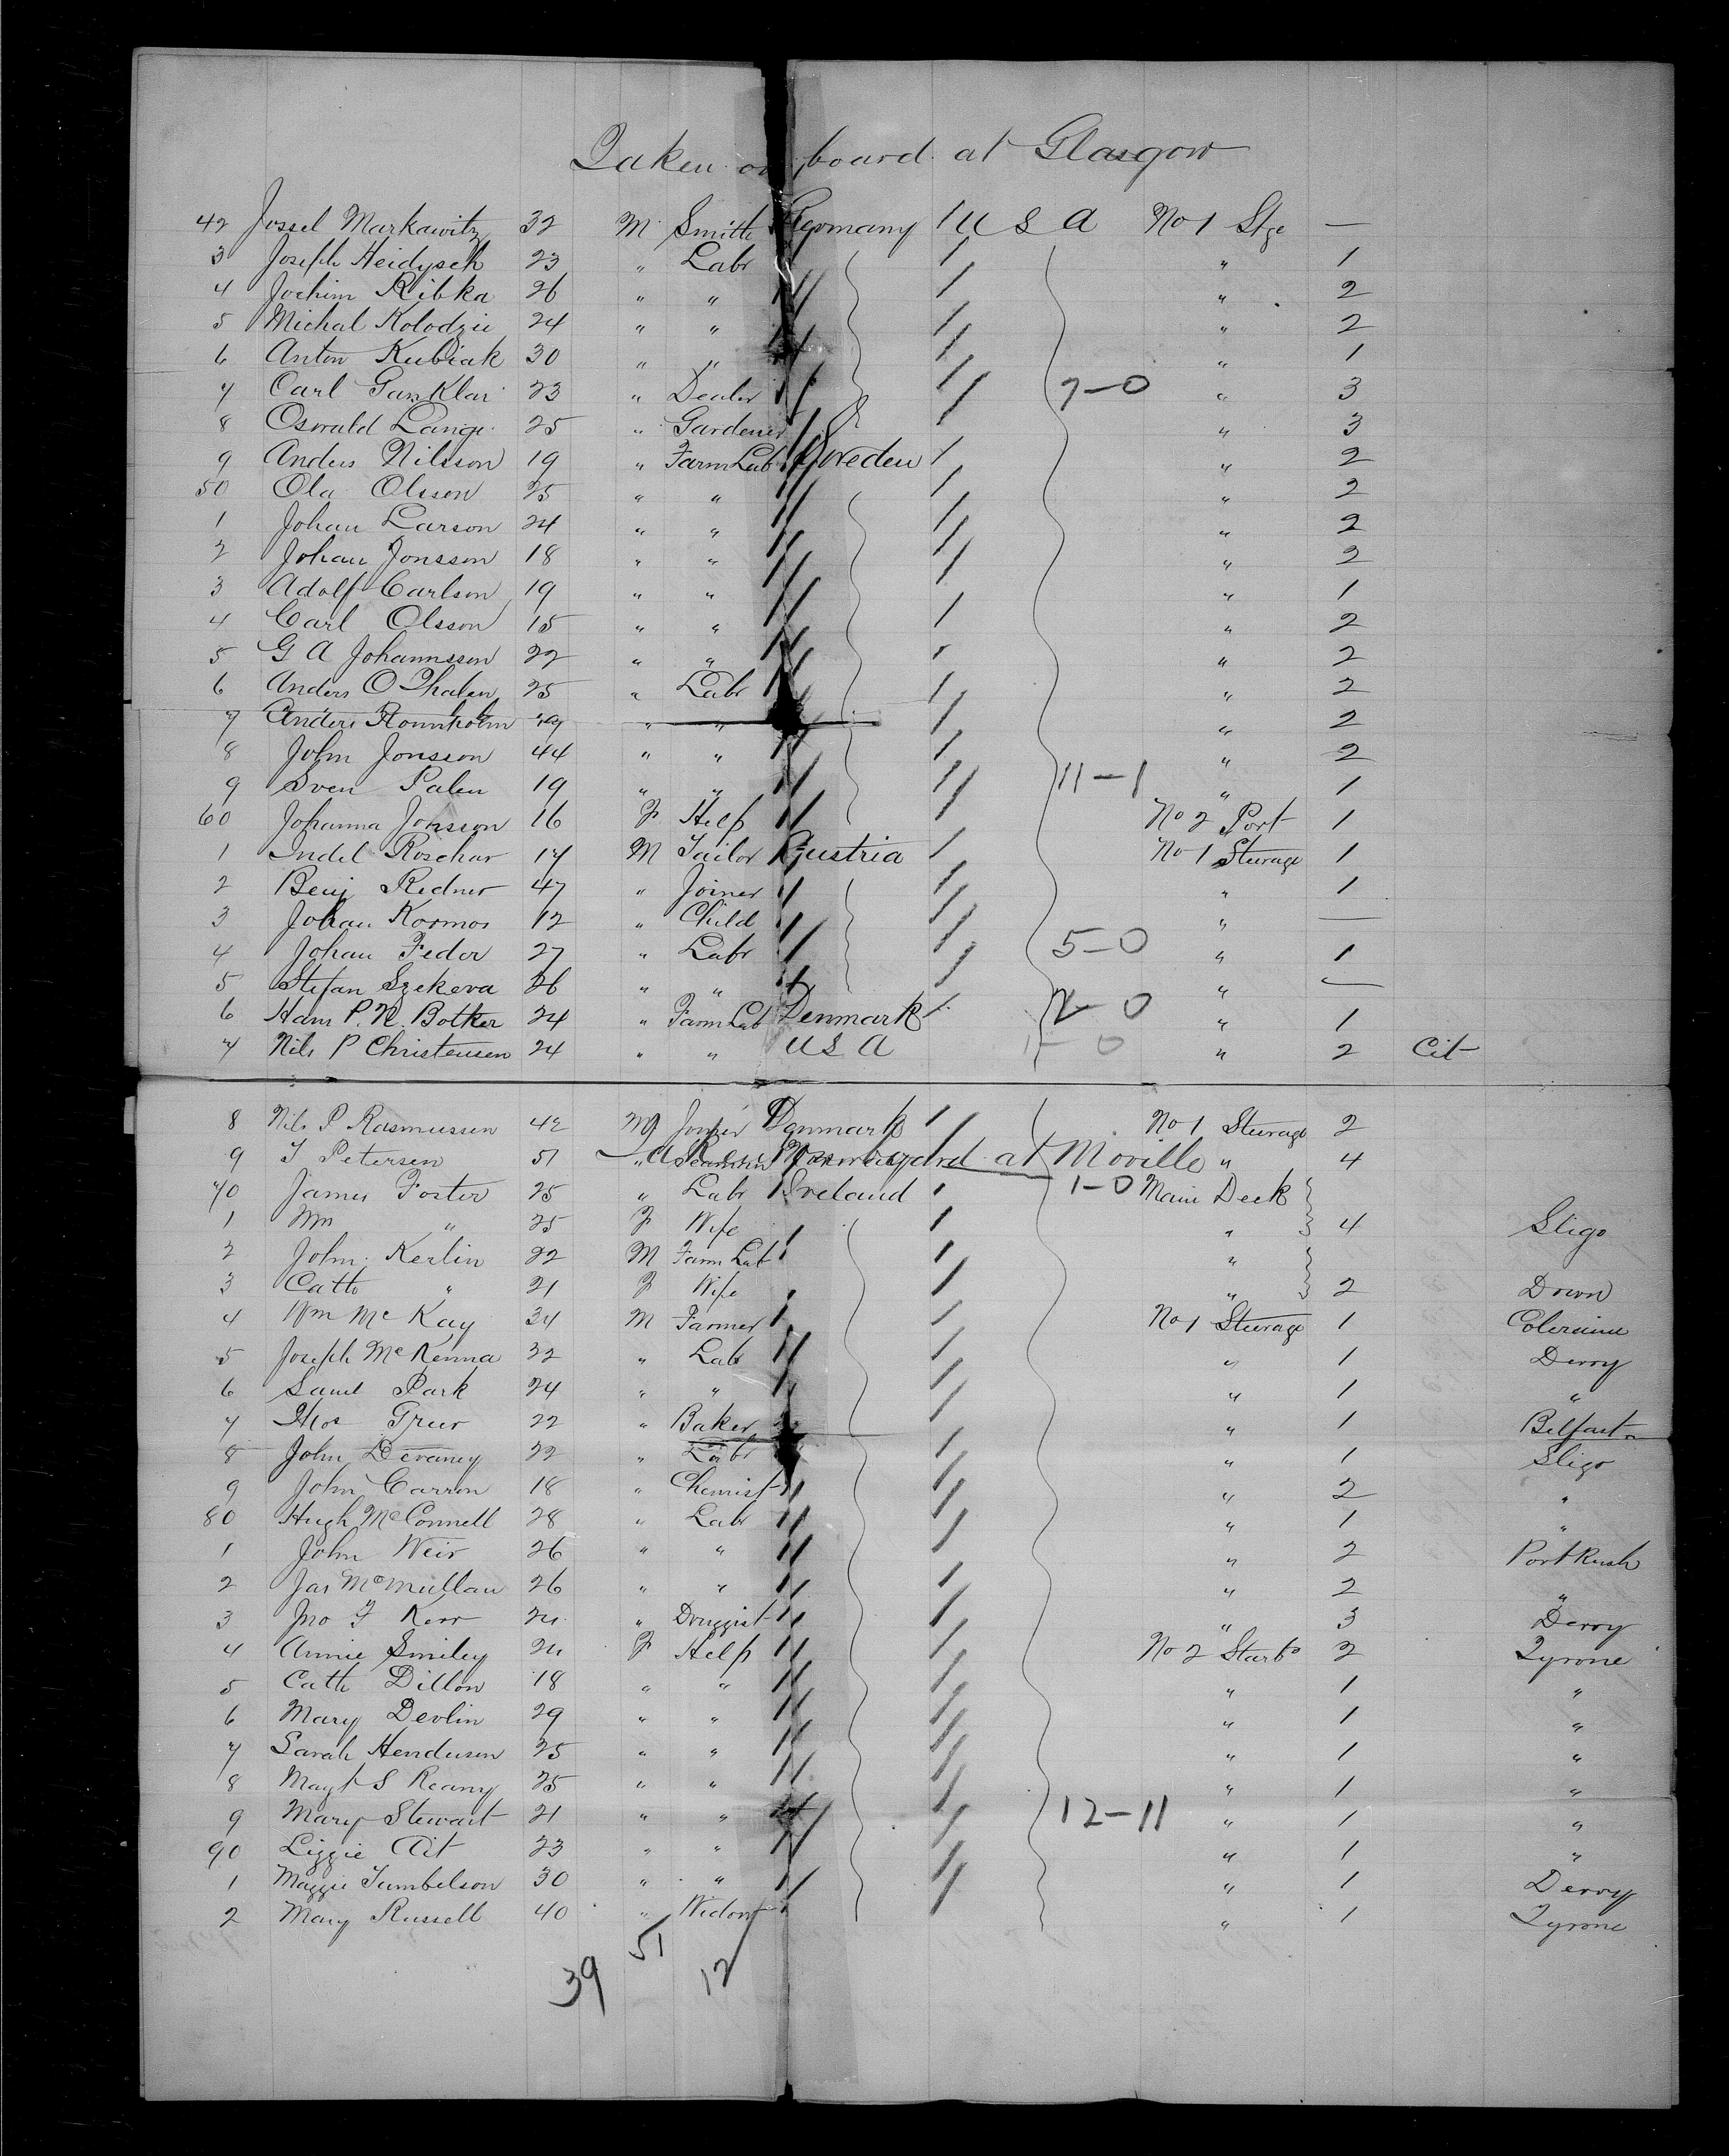 Taken on board at Glasgow
42 Jossel Markawitz 32 M Smith Germany U S A No 1 Stge —
3 Joseph Heidysch 23 " Labr " 1
4 Jochim Ribka 26 " " " 2
5 Michal Kolodzie 24 " " " 2
6 Anton Kubiak 30 " " " 1
7 Carl 23 " Dealer 7-0 " 3
8 Oswald Lange 25 " Gardener " 3
9 Anders Nilsson 19 " Farm Lab Sweden " 2
50 Ola Olsson 25 " " " 2
1 Johan Larson 24 " " " 2
2 Johan Jonsson 18 " " " 2
3 Adolf Carlson 19 " " " 1
4 Carl Olsson 15 " " " 2
5 G A Johannsson 22 " " " 2
6 Anders O Thalen 25 " Labr " 2
7 Anders " " " 2
8 John Jonsson 44 " " " 2
9 Sven Palen 19 " " 11-1 " 1
60 Johanna Jonsson 16 F Help No 2 Port 1
1 Indel Roschar 17 M Tailor Austria No 1 Sturage 1
2 Benj Redner 47 " Joiner " 1
3 Johan Kormos 12 " Child " —
4 Johan Fedor 27 " Labr 5-0 " 1
5 Stefan Szekeva 26 " " " —
6 Hans P. N. Botker 24 " Farm Lab Denmark 2-0 " 1
7 Nils P Christensen 24 " " U S A 1-0 " 2 Cit
8 Nils P Rasmussen 42 M Joiner Denmark No 1 Sturage 2
Taken on board at Moville
9 T Petersen 51 " Seaman Norway " 4
70 James Foster 25 " Labr Ireland 1-0 Main Deck
1 Mrs " 25 F Wife " 4 Sligo
2 John Kerlin 22 M Farm Lab "
3 Cath " 21 F Wife " 2 Down
4 Wm McKay 34 M Farmer No 1 Sturage 1 Coleraine
5 Joseph McKenna 32 " Labr " 1 Derry
6 Saml Park 24 " " " 1 "
7 Thos Greer 22 " Baker " 1 Belfast
8 John Devaney 22 " Labr " 1 Sligo
9 John Carron 18 " Chemist " 2 "
80 Hugh McConnell 28 " Labr " 1 "
1 John Weir 26 " " " 2 Port Rush
2 Jas McMullan 26 " " " 2 "
3 Jno F Kerr 24 " Druggist " 3 Derry
4 Annie Smiley 24 F Help No 2 Starb 2 Tyrone
5 Cath Dillon 18 " " " 1 "
6 Mary Devlin 29 " " " 1 "
7 Sarah Henderson 25 " " " 1 "
8 Magt S Reany 25 " " " 1 "
9 Mary Stewart 21 " " 12-11 " 1 "
90 Lizzie Ait 23 " " " 1 "
1 Maggie Tumbelson 30 " " " 1 Derry
2 Mary Russell 40 " Widow " 1 Tyrone
39 51 12